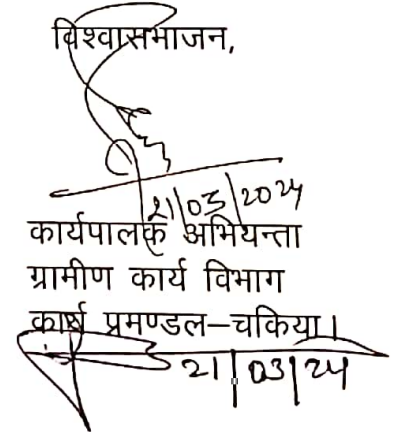 विश्वासभाजन,
21/03/2024
कार्यपालक अभियन्ता
ग्रामीण कार्य विभाग
कार्य प्रमण्डल–चकिया।
21/03/24